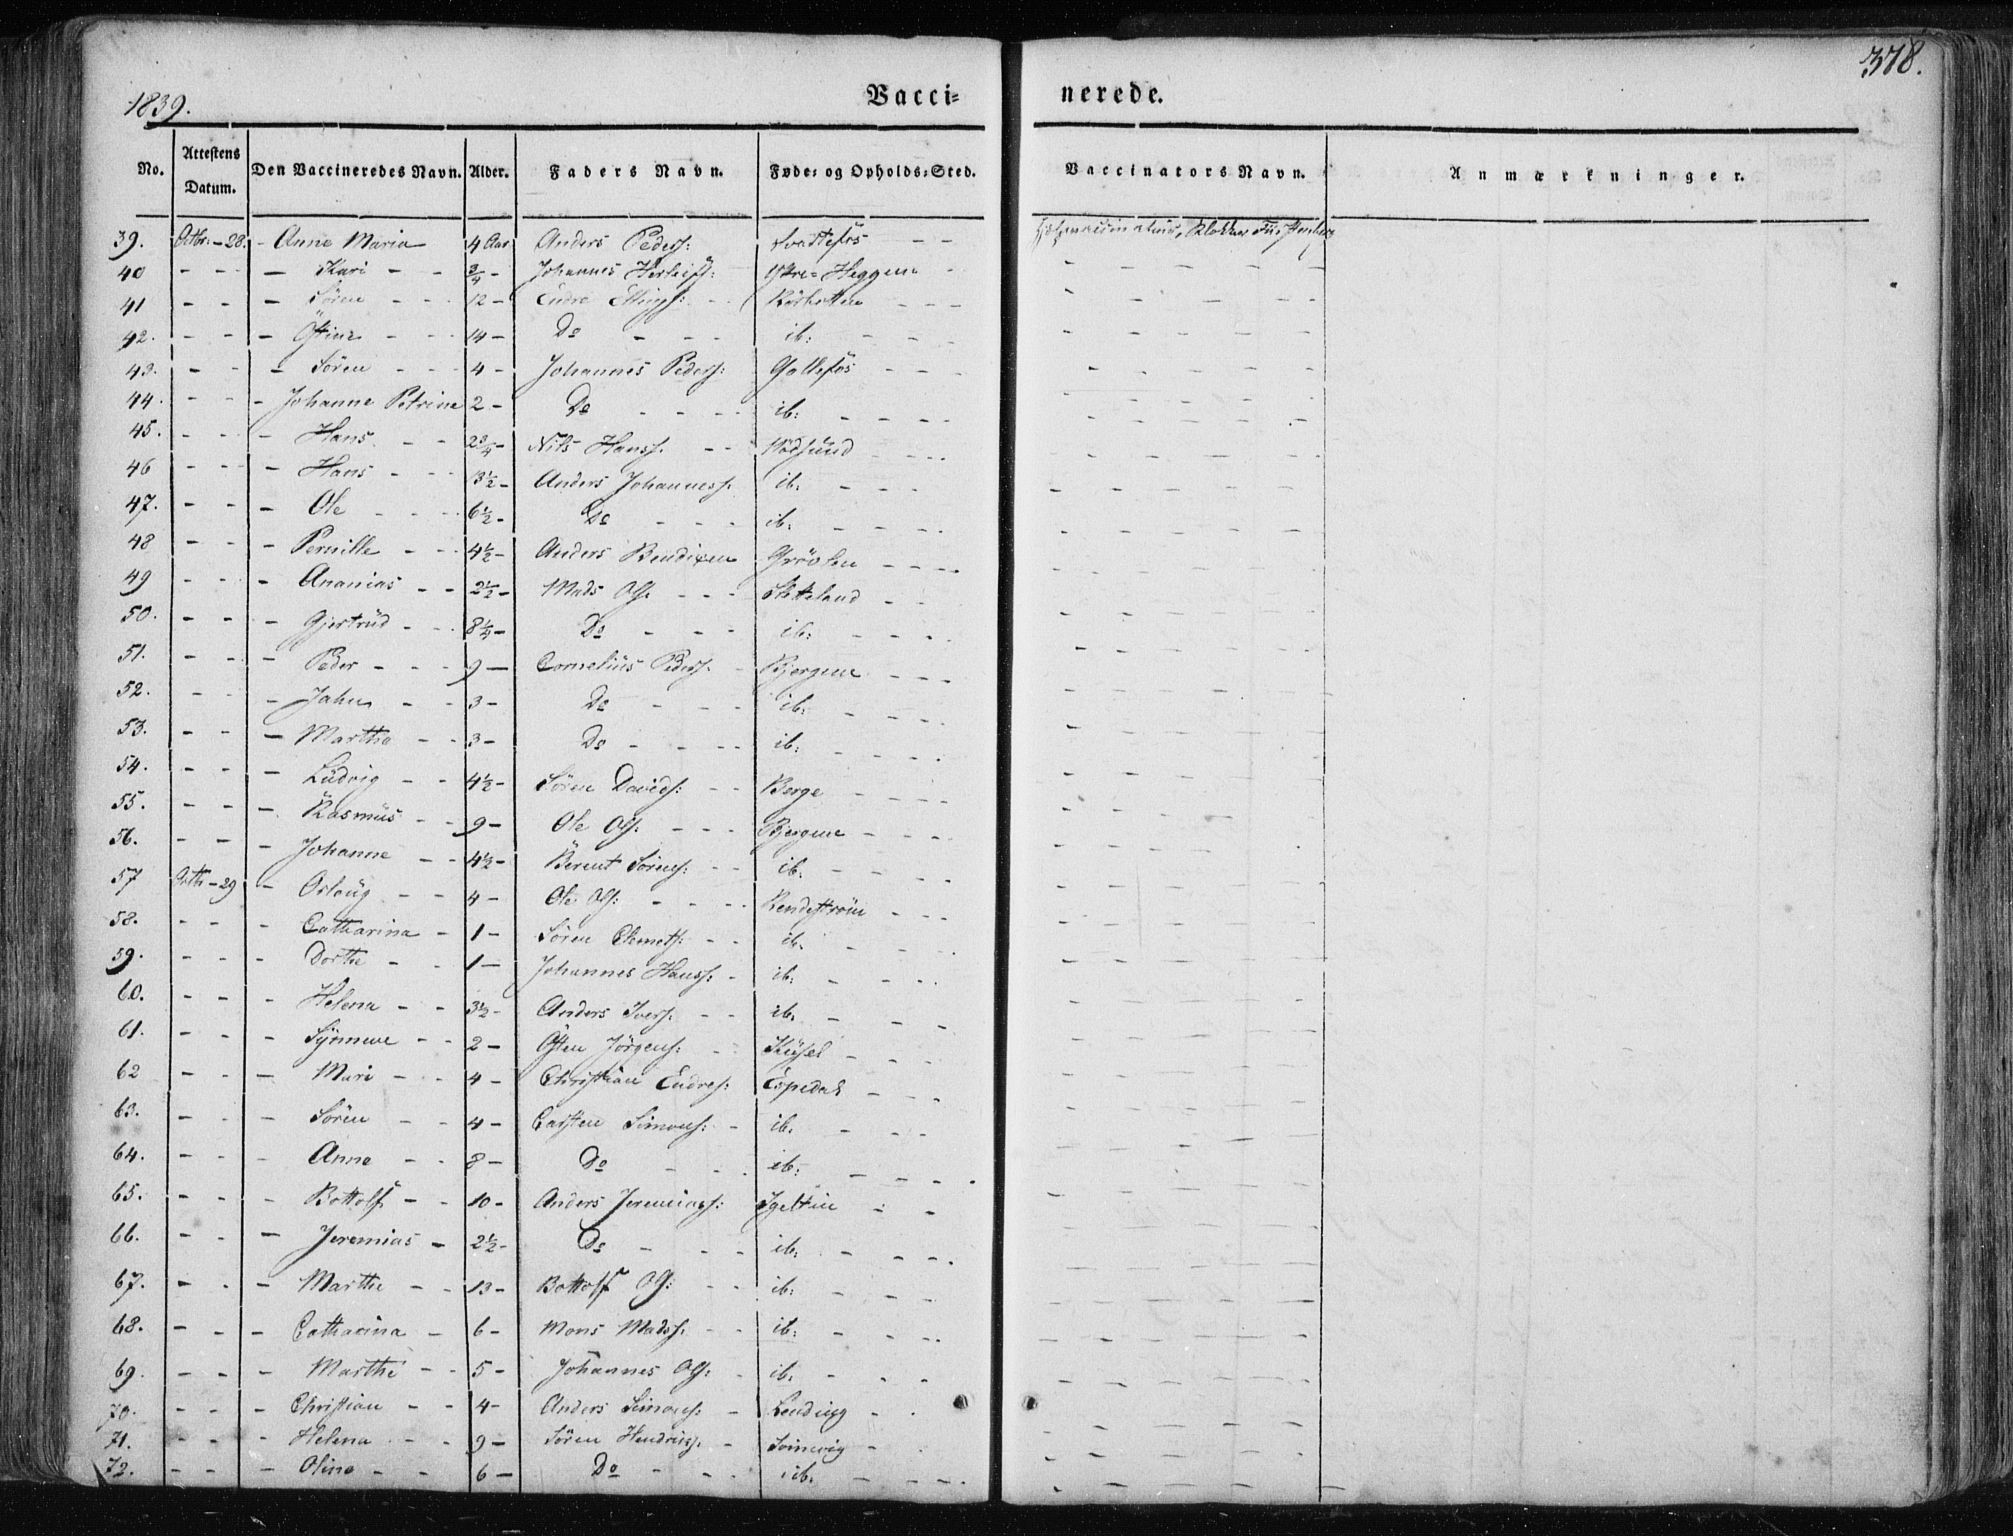 378.
1839.
Vacci= nerede.
No. Attestens Datum. Den Vaccineredes Navn. Alder. Faders Navn. Føde= og Opholds=Sted. Vaccinators Navn. Anmærkninger.
39. Octbr: - 28. - Anne Maria 4 Aar Anders Peders: - -
40 - - - Kari - - 3/4 - Johannes Herleifs: Ytre= Heggem -
41 - - - Sören - - - 12 - Endre Ellings: - -
42. - - - Östine - - 14 - Do - - - ib: - - -
43. - - - Sören - - - 4 - Johannes Peders: Gallefos - - -
44. - - - Johanne Petrine 2 - Do - - - - ib: - - - -
45. - - - Hans - - 2 3/4 - Nils Hanss. - - Vödsund - - - -
46 - - - Hans - - 3 1/2 - Anders Johanness: ib: - - -
47. - - - Ole - - - 6 1/2 - Do - - - ib: - - - -
48 - - - Pernille - - - 4 1/2 - Anders Bendixen - - - -
49 - - - Ananias - - 2 1/2 - Mads Ols: - - - - -
50. - - - Gjertrüd - - 8 1/4 - Do - - - ib: - - - -
51. - - - Peder - - - 9 - Cornelius Peders. - Bjergene - - -
52. - - - Jahn - - 3 - Do - - - ib: - - - -
53. - - - Marthe - - 3 - Do - - - - ib: - - - -
54. - - - Ludvig - - 4 1/2 - Sören Davids: - - Berge - - - -
55. - - - Rasmüs - - 9 - Ole Ols: - - - Bjergene - - - -
56. - - - Johanne - - 4 1/2 - Berent Sörens: - ib: - - - -
57 Octbr - 29 - Osloüg - - 4 - Ole Ols: - - - - - - -
58. - - - Catharina - 1 - Sören Clemets: - - ib: - - -
59. - - - Dorthe - - 1 - Johannes Hanss: - ib: - - - -
60. - - - Helena - - 3 1/2 - Anders Ivers: - - ib: - - -
61. - - - Synneve - - 2 - Östen Jörgens: - - - - -
62 - - - Mari - - 4 - Christian Endres: Espedal - - -
63. - - - Sören - - 4 - Carsten Simons: - ib: - - -
64. - - - Anne - - 8 - Do - - - ib: - - - -
65. - - - Bottolf - - 10 - Anders Jeremiass: - -
66. - - - Jeremias - 2 1/2 - Do - - - ib: - - - -
67. - - - Marthe - - 13 - Bottolf Ols: - - ib: - - -
68. - - - Catharina - 6 - Mons Madss. - - ib: - - - -
69. - - - Marthe - - 5 - Johannes Ols: - ib: - - -
70. - - - Christian - - 4 - Anders Simons: - - -
71. - - - Helena - - 9 - Sören Hendriks. - - -
72. - - - Oline - - 6 - Do - - - ib: - - - -